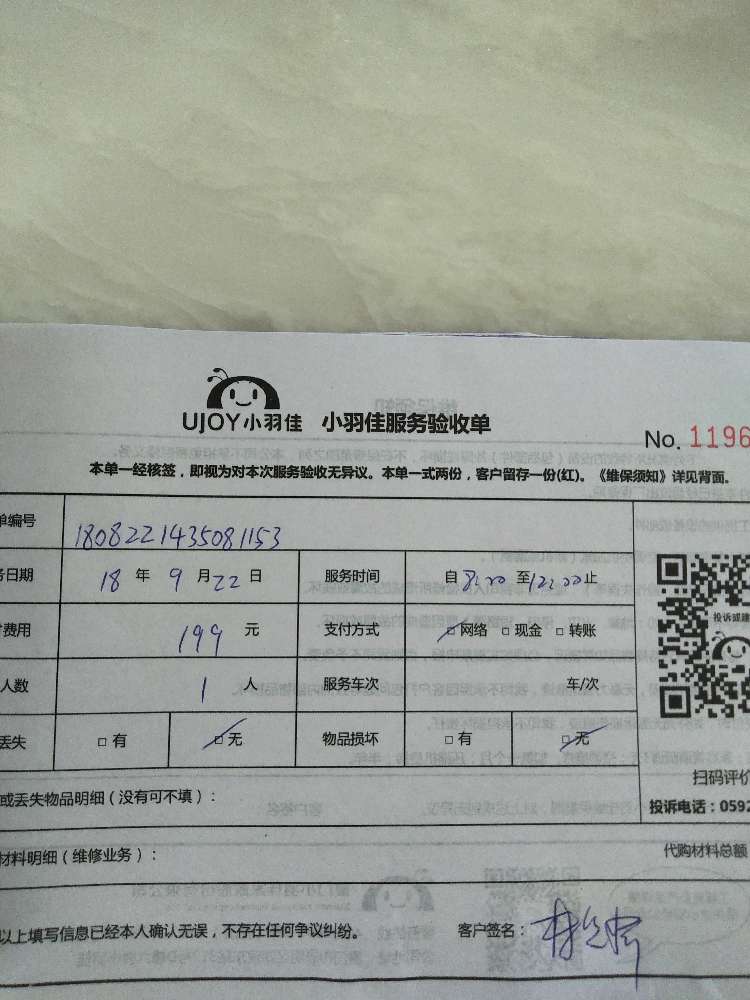 UJOY小羽佳 小羽佳服务验收单
No. 1196
本单一经核签，即视为对本次服务验收无异议。本单一式两份，客户留存一份(红)。《维保须知》详见背面。
单编号 1808221435081153
务日期 18 年 9 月 22 日 服务时间 自 8:00 至 12:00 止
费用 199 元 支付方式 □网络 □现金 □转账
人数 1 人 服务车次 车/次
丢失 □有 □无 物品损坏 □有 □无
投诉或建
扫码评价
投诉电话：0592
或丢失物品明细（没有可不填）：
材料明细（维修业务）： 代购材料总额
以上填写信息已经本人确认无误，不存在任何争议纠纷。 客户签名：